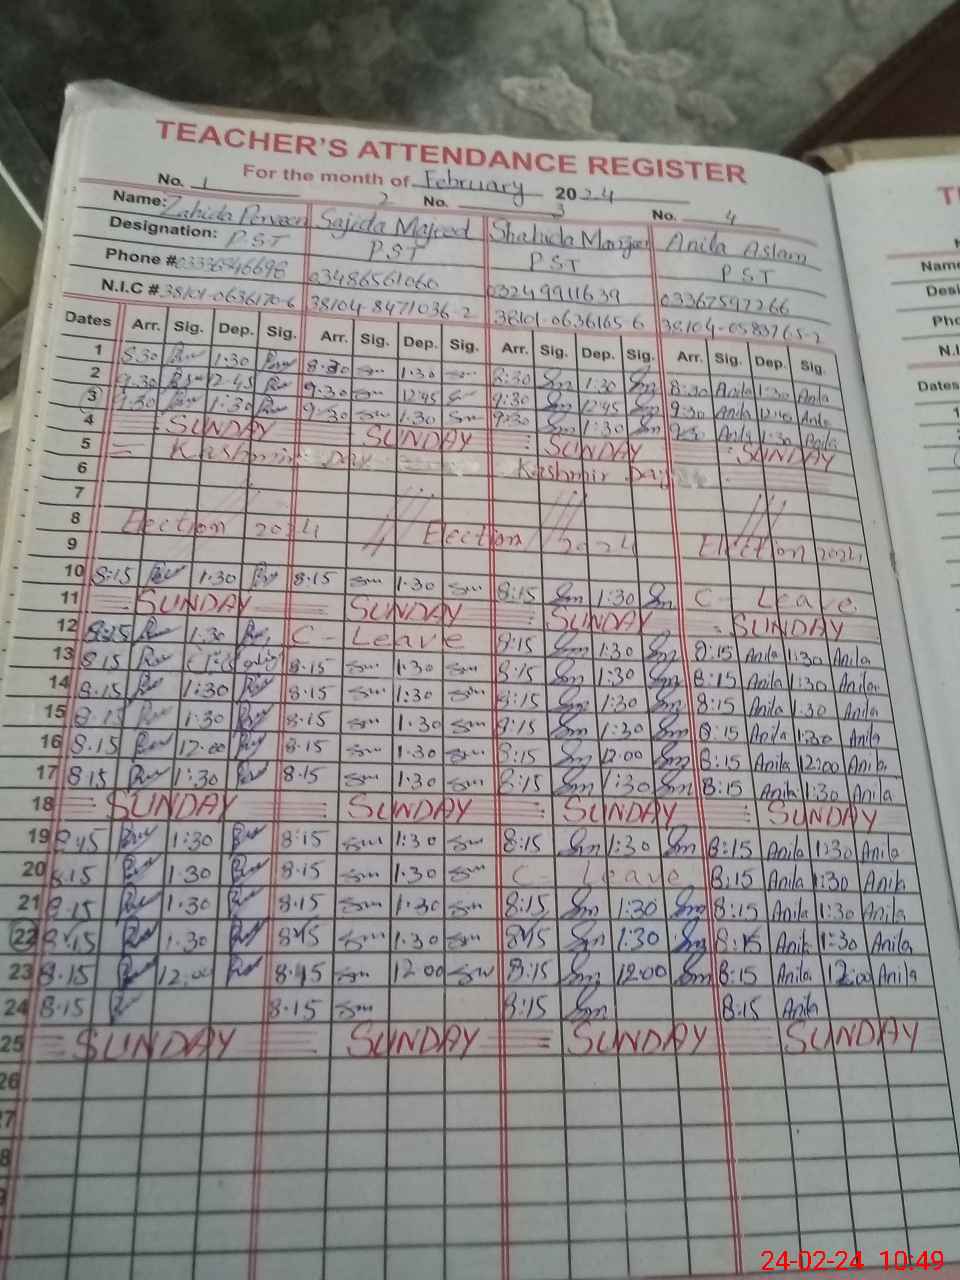 TEACHER'S ATTENDANCE REGISTER
For the month of February 2024
No. 1 2 No. 3 No. 4
Name: Zahida Perveen Sajida Majeed Shahida Manzoor Anila Aslam
Designation: P.S.T PST PST PST
Phone # 03486561060 03249911639 03367597266
N.I.C # 38101-0636170-6 38104-8471036-2 38101-0636165 6 38104-0583765-2
Dates Arr. Sig. Dep. Sig. Arr. Sig. Dep. Sig. Arr. Sig. Dep. Sig. Arr. Sig. Dep. Sig.
1 8:30 1:30 8:30 sm 1:30 sm 8:30 Sm 1:30 Sm 8:30 Anila 1:30 Anila
2 9:30 12:45 9:30 sm 12:45 9:30 Sm 12:45 Sm 9:30 Anila Anila
3 9:30 1:30 9:30 sm 1:30 sm 9:30 Sm 1:30 Sm 9:30 Anila 1:30 Anila
4 SUNDAY SUNDAY SUNDAY SUNDAY
5 Kashmir Day Kashmir Day
6
7
8 Election 2024 Election 2024 Election 2024
9
10 8:15 1:30 8:15 sm 1:30 sm 8:15 Sm 1:30 Sm C - Leave
11 SUNDAY SUNDAY SUNDAY SUNDAY
12 8:15 1:30 C - Leave 8:15 Sm 1:30 Sm 8:15 Anila 1:30 Anila
13 8:15 8:15 sm 1:30 sm 8:15 Sm 1:30 Sm 8:15 Anila 1:30 Anila
14 8:15 1:30 8:15 sm 1:30 sm 8:15 Sm 1:30 Sm 8:15 Anila 1:30 Anila
15 8:15 1:30 8:15 sm 1:30 sm 8:15 Sm 1:30 Sm 8:15 Anila 1:30 Anila
16 8:15 12:00 8:15 sm 1:30 sm 8:15 Sm 12:00 Sm 8:15 Anila 12:00 Anila
17 8:15 1:30 8:15 sm 1:30 sm 8:15 Sm 1:30 Sm 8:15 Anila 1:30 Anila
18 SUNDAY SUNDAY SUNDAY SUNDAY
19 8:15 1:30 8:15 sm 1:30 sm 8:15 Sm 1:30 Sm 8:15 Anila 1:30 Anila
20 8:15 1:30 8:15 sm 1:30 sm C - Leave 8:15 Anila 1:30 Anila
21 8:15 1:30 8:15 sm 1:30 sm 8:15 Sm 1:30 Sm 8:15 Anila 1:30 Anila
22 8:15 1:30 8:15 sm 1:30 sm 8:15 Sm 1:30 Sm 8:15 Anila 1:30 Anila
23 8:15 12:00 8:15 sm 12:00 sm 8:15 Sm 12:00 Sm 8:15 Anila 12:00 Anila
24 8:15 8:15 sm 8:15 Sm 8:15 Anila
25 SUNDAY SUNDAY SUNDAY SUNDAY
26
27
8
9
Name
Desi
Pho
N.I
Dates
24-02-24 10:49